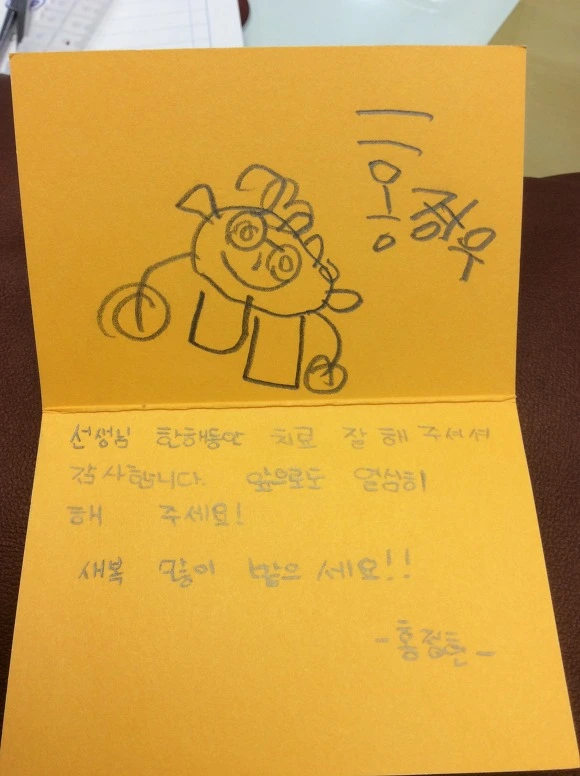 선생님 한해동안 치료 잘 해 주셔셔
감사합니다. 앞으로도 열심히
해 주세요!
새복 많이 받으세요!!